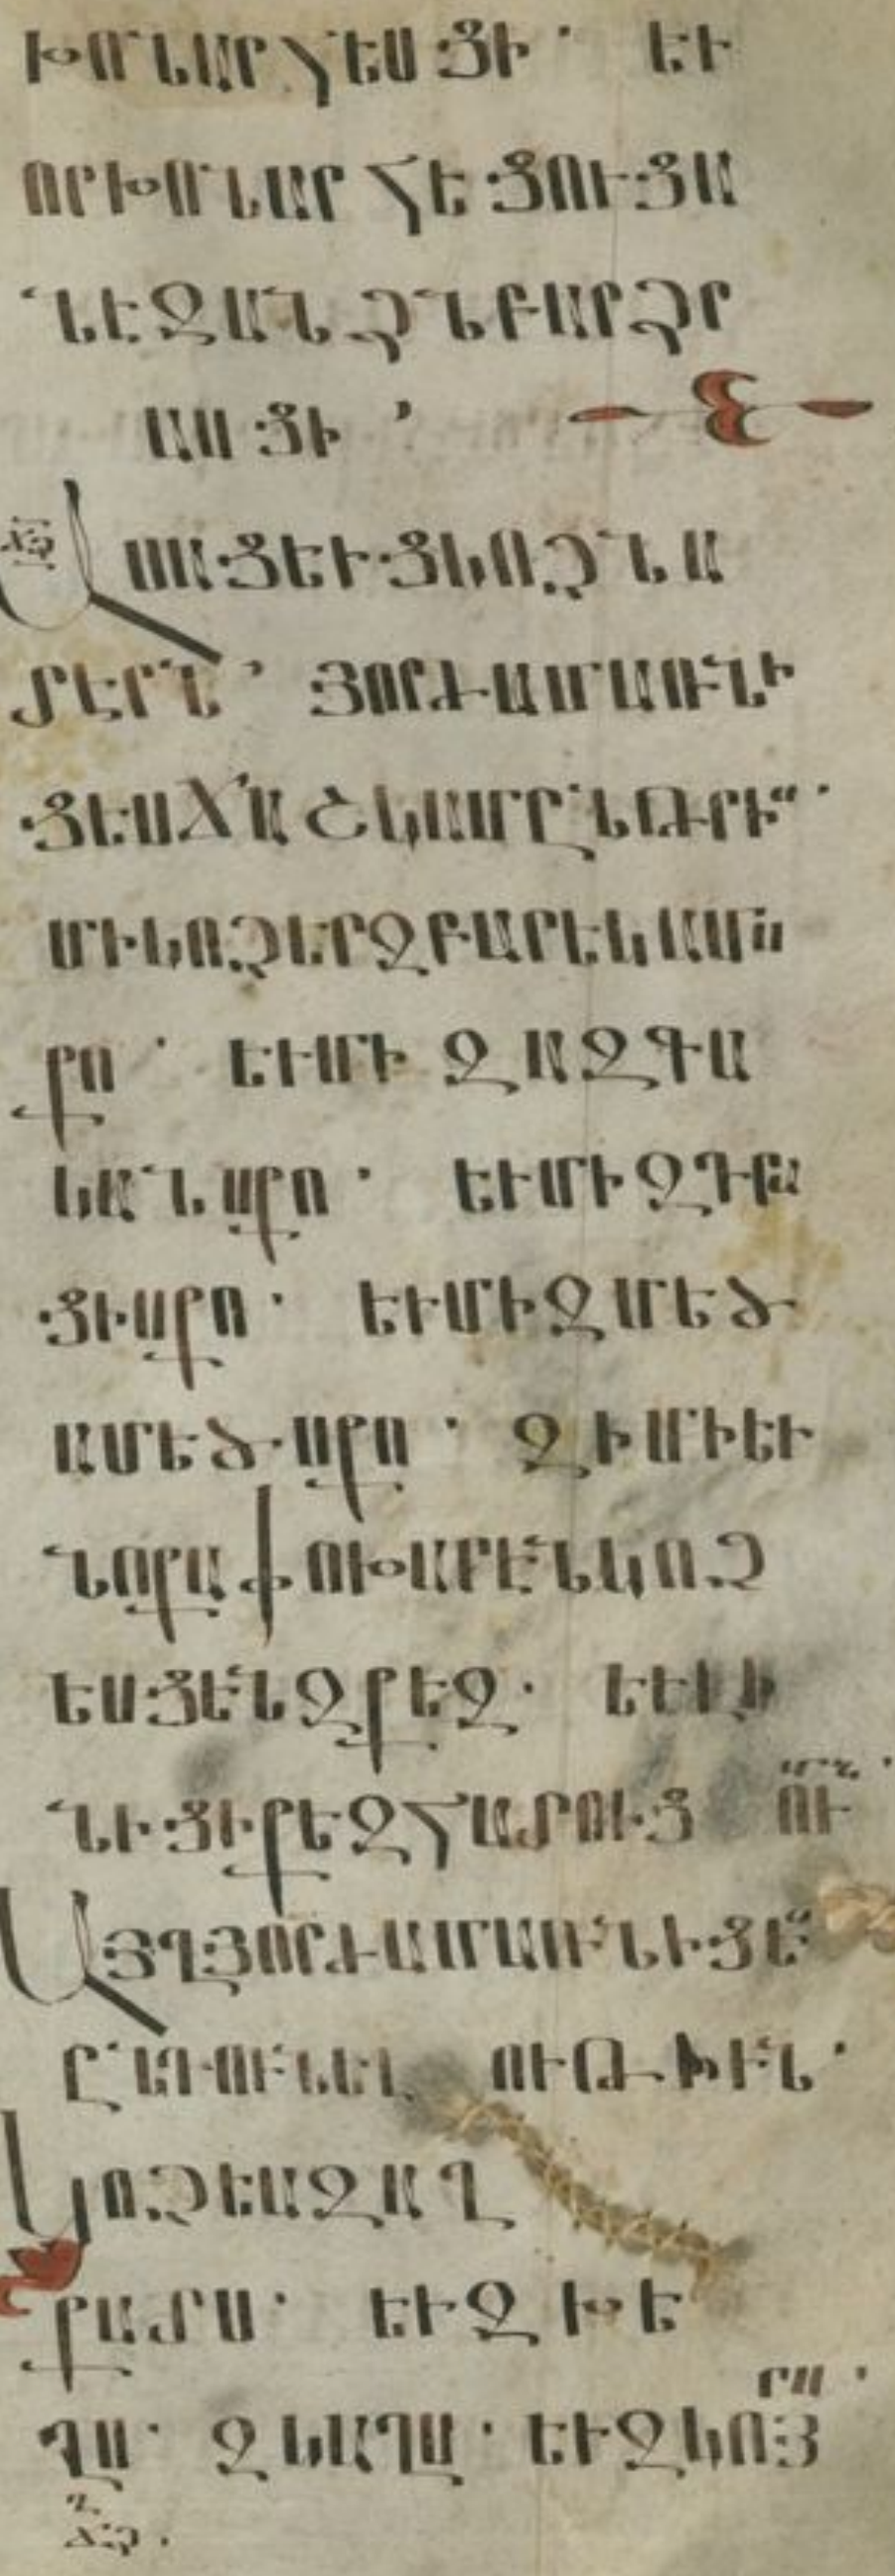 ԽՈՆԱՐՀԵՍՑԻ· ԵՒ
ՈՐԽՈՆԱՐՀԵՑՈՒՑԱ
ՆԷԶԱՆՁՆԲԱՐՁՐ
ԱՍՑԻ ՚
ԱՍԱՑԵՒՑԿՈՉՆԱ
ՏԷՐՆ՚ ՅՈՐԺԱՄԱՌՆԻ
ՑԵՍՃԱՇԿԱՄԸՆԹՐԻՍ·
ՄԻԿՈՉԵՐԶԲԱՐԵԿԱՄՍ
ՔՈ· ԵՒՄԻԶԱԶԳԱ
ԿԱՆՍՔՈ· ԵՒՄԻԶԴՐԱ
ՑԻՍՔՈ· ԵՒՄԻԶՄԵԾ
ԱՄԵԾՍՔՈ· ԶԻՄԻԵՒ
ՆՈՔԱՓՈԽԱՐԷՆԿՈՉ
ԵՍՑԵՆԶՔԵԶ· ԵՒԼԻ
ՆԻՑԻՔԵԶՀԱՏՈՒՑՈՒՄՆ·
ԱՅՂՅՈՐԺԱՄԱՌՆԻՑԵՍ
ԸՆԴՈՒՆԵԼՈՒԹԻՒՆ·
ԿՈՉԵԱԶԱՂ
ՔԱՏՍ· ԵՒԶԽԵ
ՂՍ· ԶԿԱՂՍ· ԵՒԶԿՈՅՐՍ·